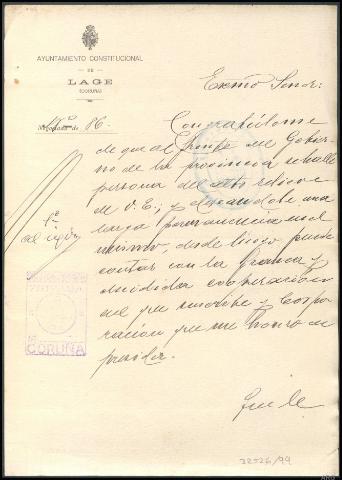 AYUNTAMIENTO CONSTITUCIONAL
DE
LAGE
(CORUÑA)
Negociado de
86
Exmo Señor:
Congratúlome
de que al frente del Gobier
no de la provincia se halle
persona del relieve
de V.E.; y deseandole una
larga permanencia en el
mismo, desde luego puede
contar con la franca y
decidida cooperación
del que suscribe y Corpo
ración que me honro en
presidir.
CORUÑA
32526/99